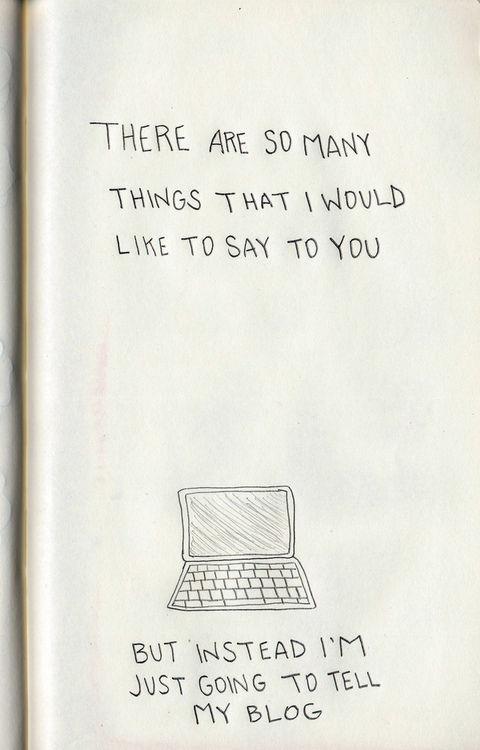 THERE ARE SO MANY
THINGS THAT I WOULD
LIKE TO SAY TO YOU
BUT INSTEAD I'M
JUST GOING TO TELL
MY BLOG